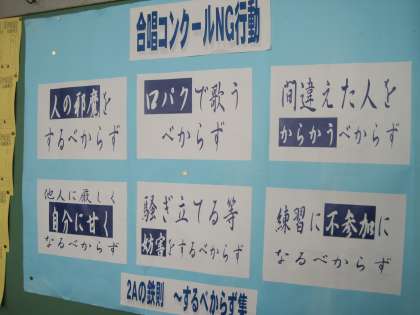 合唱コンクールNG行動
人の邪魔を
するべからず
口パクで歌う
べからず
間違えた人を
からかうべからず
他人に厳しく
自分に甘く
なるべからず
騒ぎ立てる等
妨害をするべからず
練習に不参加に
なるべからず
2Aの鉄則 〜するべからず集